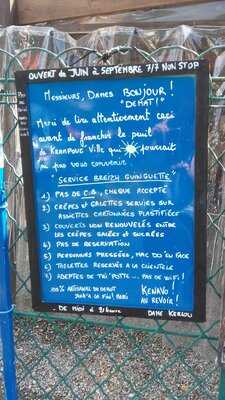 OUVERT de JUIN à SEPTEMBRE 7/7 NON STOP
MESSIEURS, DAMES BONJOUR !
"DEMAT!"
Merci de lire attentivement ceci
avant de franchir le seuil
de KERAMPOUL'VILLE qui pourrait
ne pas vous convenir.
SERVICE BREIZH GUINGUETTE
1) PAS DE C.B., CHEQUE ACCEPTÉ
2) CRÊPES et GALETTES SERVIES SUR
ASSIETTES CARTONNÉES PLASTIFIÉES
3) COUVERTS NON RENOUVELÉS ENTRE
LES CRÊPES SALÉES et SUCRÉES
4) PAS DE RESERVATION
5) PERSONNES PRESSÉES, MAC DO'EN FACE
6) TOILETTES RESERVÉS A LA CLIENTELE
7) ADEPTES DE TRI'POTTE... PAS DE WIFI!
100% ARTISANAL DU DEBUT
JUSQU'A LA FIN! MERCI
KENAVO
AU REVOIR!
DE MIDI à 21 heures
DAME KERLOU